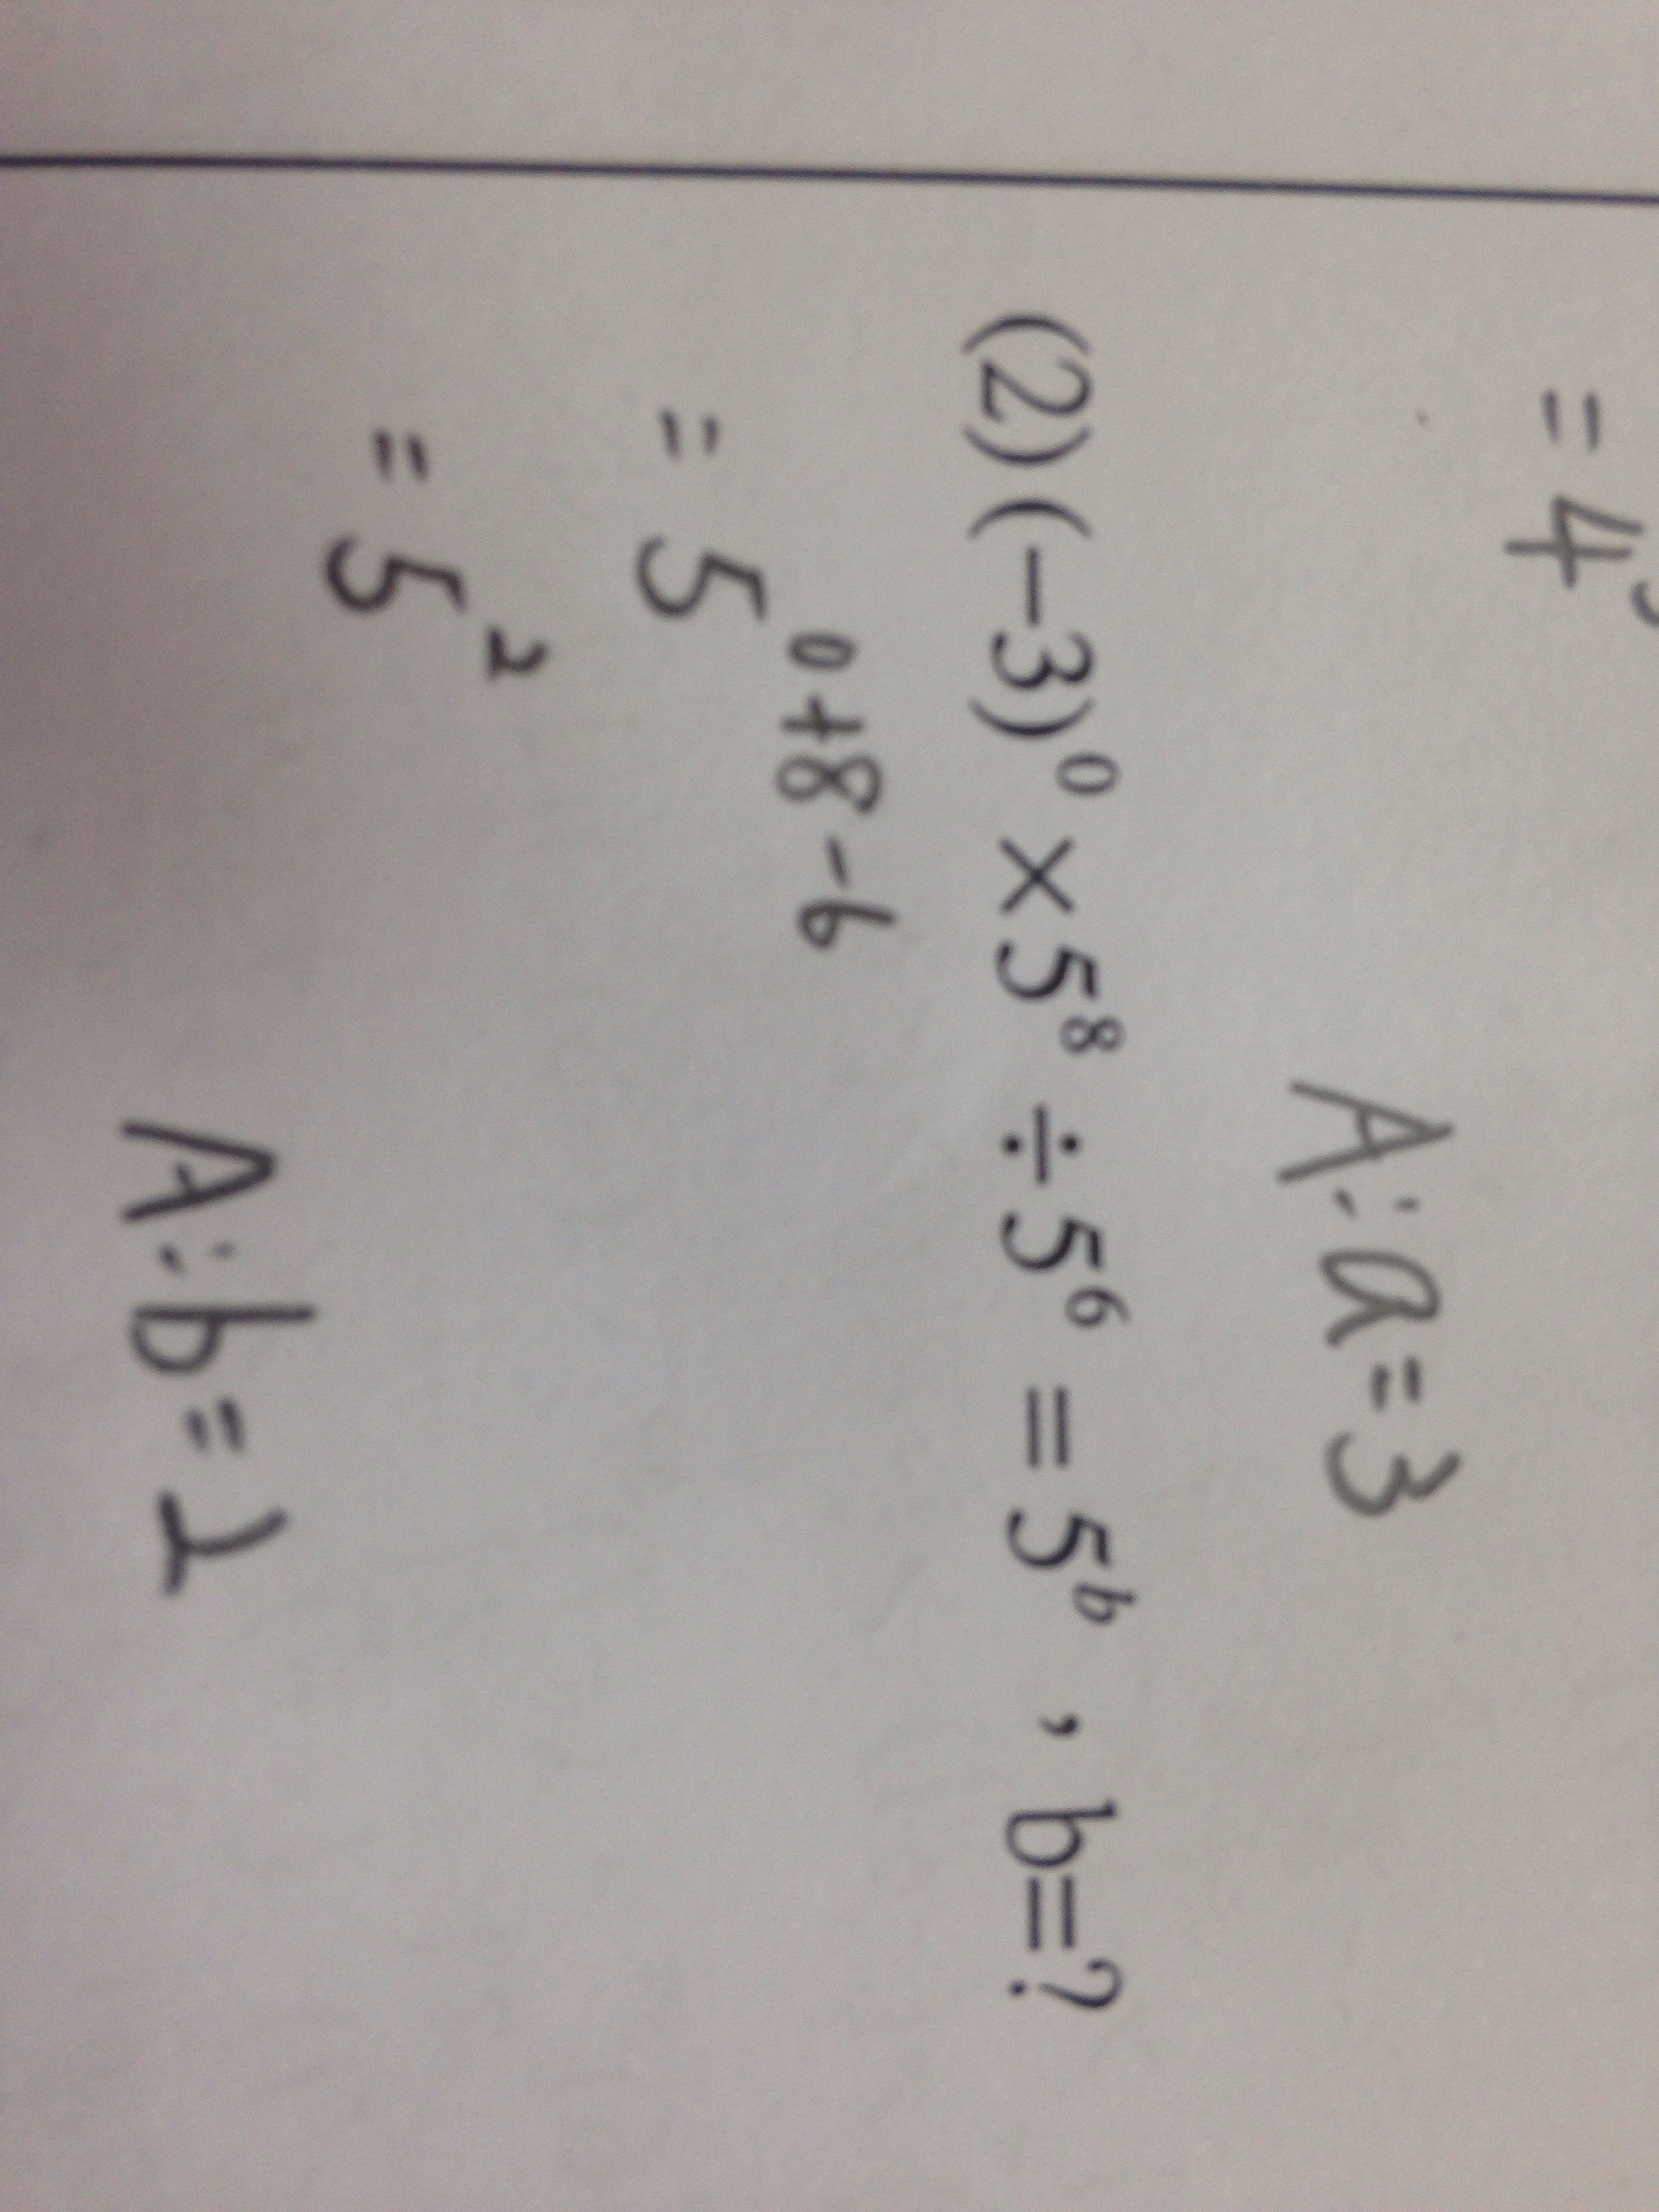 = 4³
A: a = 3
(2) (−3)⁰ × 5⁸ ÷ 5⁶ = 5ᵇ , b=?
= 5⁰⁺⁸⁻⁶
= 5²
A: b = 2